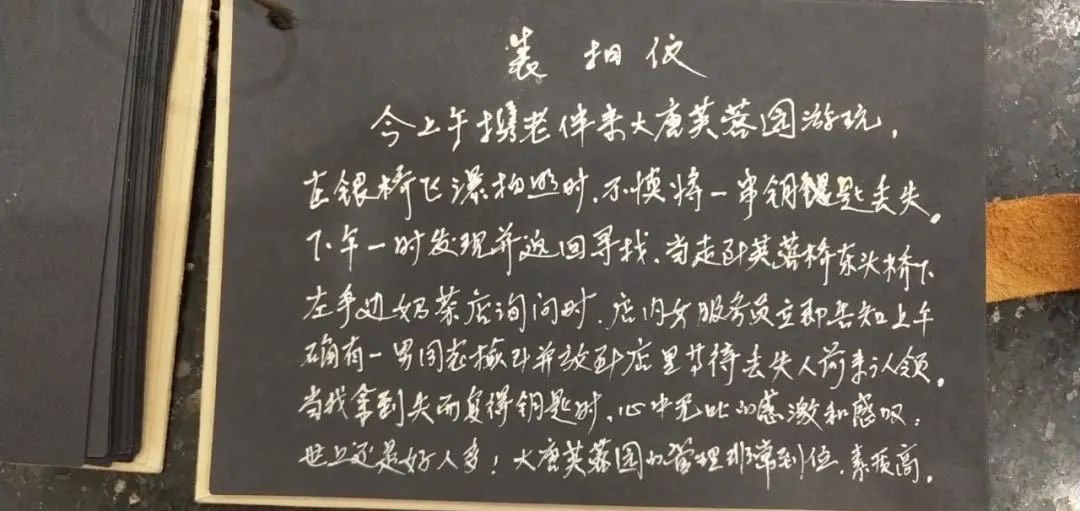 表扬信
今上午携老伴来大唐芙蓉园游玩，
在银桥飞瀑拍照时，不慎将一串钥匙丢失。
下午一时发现并返回寻找，当走到芙蓉桥东头桥下
左手边奶茶店询问时，店内女服务员立即告知上午
确有一男同志捡到并放到店里等待丢失人前来认领。
当我拿到失而复得钥匙时，心中无比的感激和感叹：
世上还是好人多！大唐芙蓉园的管理非常到位，素质高。